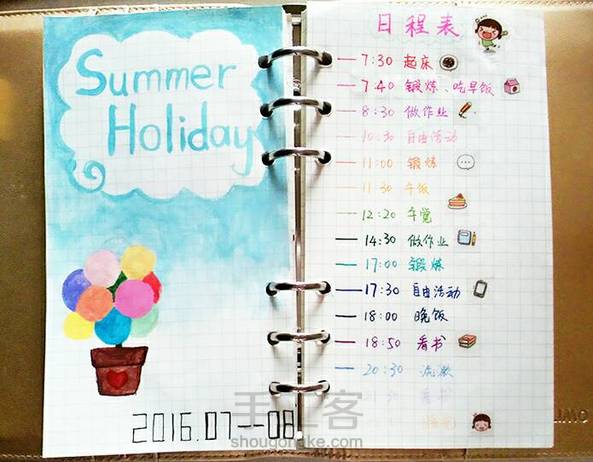 Summer
Holiday
2016.07—08
日程表
7:30 起床
7:40 锻炼、吃早饭
8:30 做作业
10:30 自由活动
11:00 锻炼
11:30 午饭
12:20 午觉
14:30 做作业
17:00 锻炼
17:30 自由活动
18:00 晚饭
18:50 看书
20:30 洗漱
看书
手工客
shougongke.com